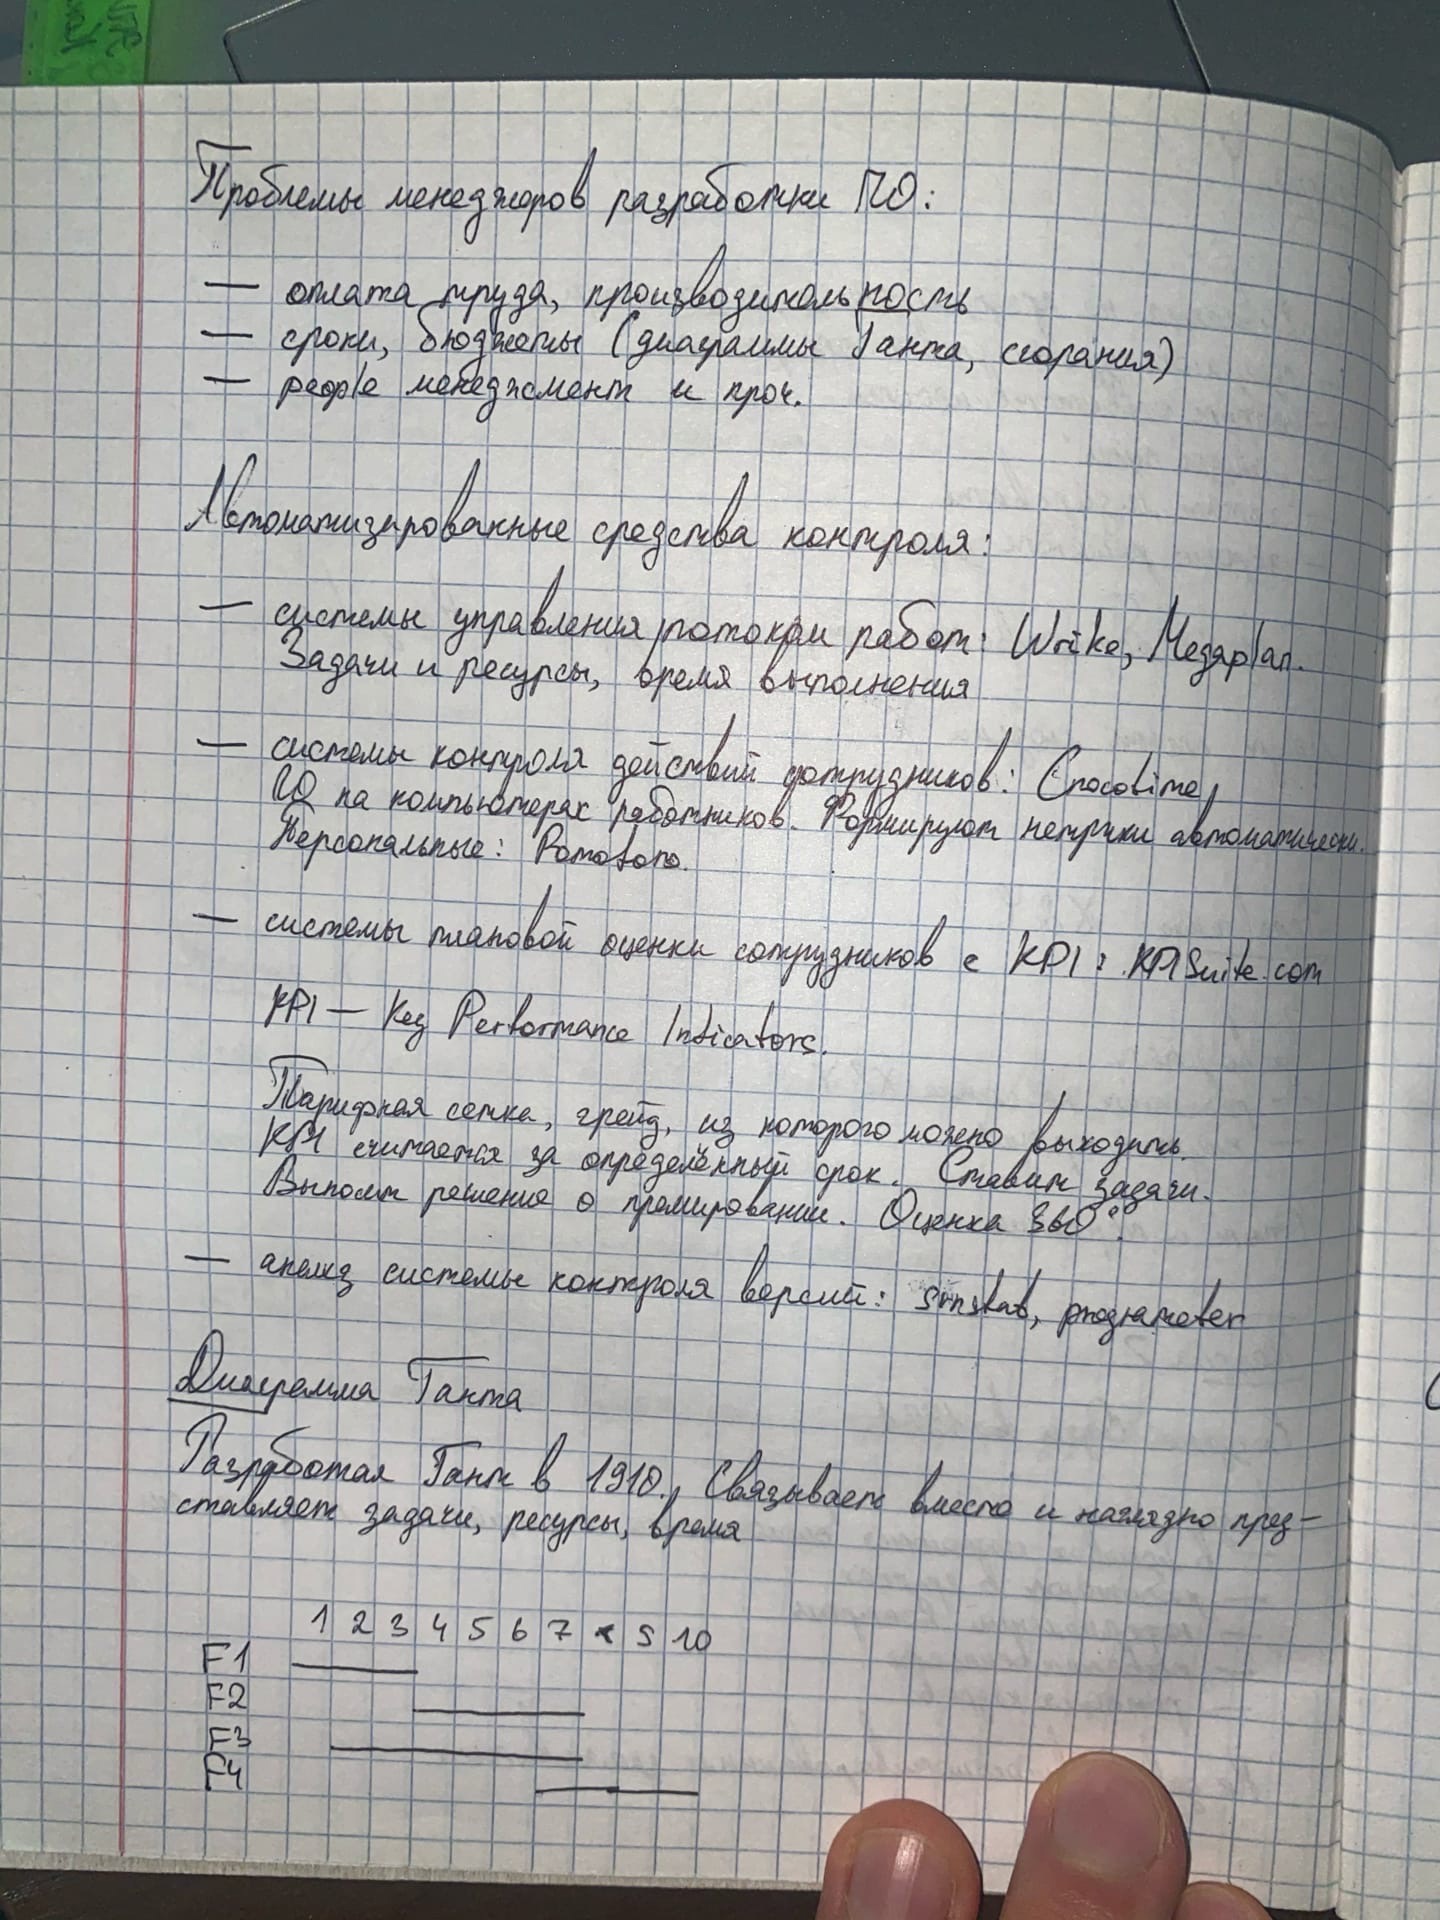 Проблемы менеджеров разработки ПО:
— оплата труда, производительность
— сроки, бюджеты (диаграммы Ганта, сгорания)
— people менеджмент и проч.
Автоматизированные средства контроля:
— системы управления потоком работ: Wrike, Megaplan.
Задачи и ресурсы, время выполнения
— системы контроля действий сотрудников: Crocotime,
ПО на компьютерах работников. Формируют метрики автоматически.
Персональные: Pomotoro.
— системы плановой оценки сотрудников с KPI: KPISuite.com
KPI — Key Performance Indicators.
Тарифная сетка, грейд, из которого можно выходить.
KPI считается за определённый срок. Ставит задачи.
решение о премировании. Оценка 360°.
— анализ системы контроля версий: programeter
Диаграмма Ганта
Разработал Гант в 1910. Связывает вместо и наглядно пред-
ставляет задачи, ресурсы, время
1 2 3 4 5 6 7 9 10
F1
F2
F3
F4